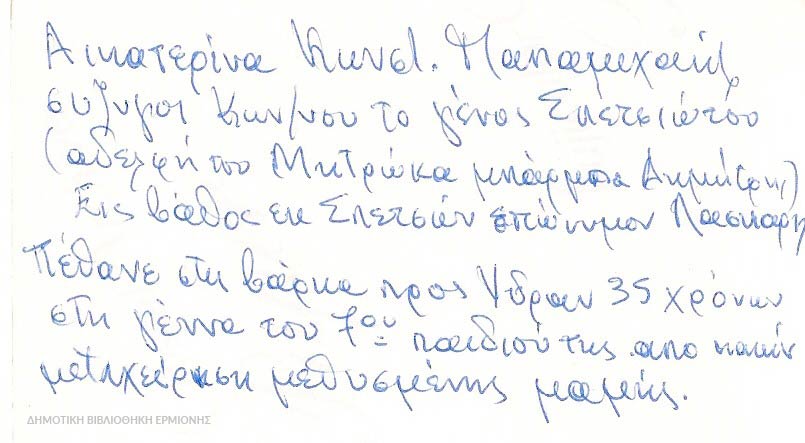 Αικατερίνα Κωνστ. Παπαμιχαήλ
συζυγοι Κων/νου το γένος Σπετσιώτου
(αδελφή του Μητρώκα μπάρμπα Δημήτρη)
Εις βάθος εκ Σπετσών επώνυμον Λάσκαρη
Πέθανε στη βάρκα προς Υδραν 35 χρόνων
στη γέννα του 7ου παιδιού της από κακήν
μεταχείρηση μεθυσμένης μαμής.
ΔΗΜΟΤΙΚΗ ΒΙΒΛΙΟΘΗΚΗ ΕΡΜΙΟΝΗΣ